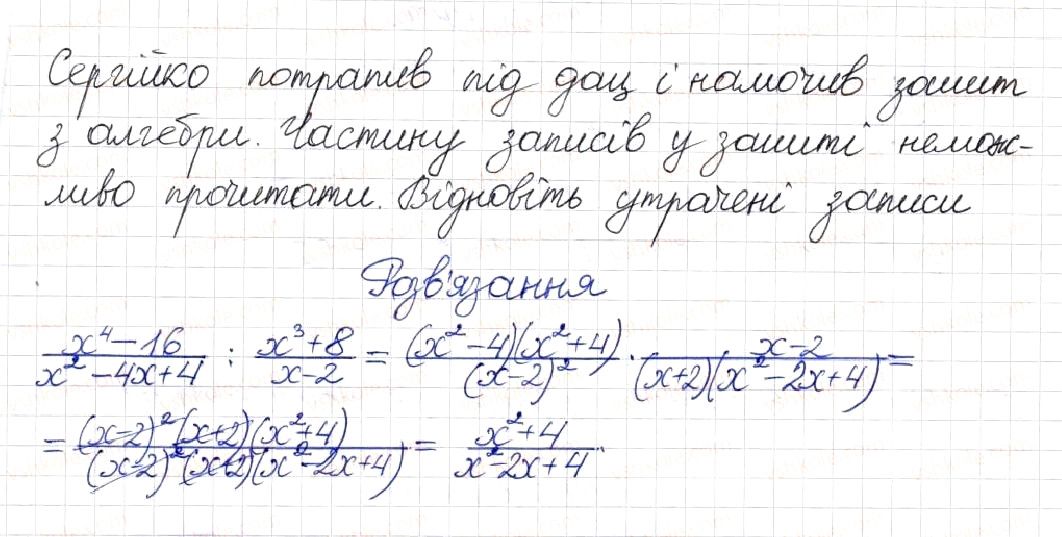 Сергійко потрапив під дощ і намочив зошит
з алгебри. Частину записів у зошиті немож-
ливо прочитати. Відновіть утрачені записи
Розв'язання
(x⁴−16)/(x²−4x+4) : (x³+8)/(x−2) = ((x²−4)(x²+4))/((x−2)²) · (x−2)/((x+2)(x²−2x+4)) =
= ((x−2)²(x+2)(x²+4))/((x−2)²(x+2)(x²−2x+4)) = (x²+4)/(x²−2x+4).